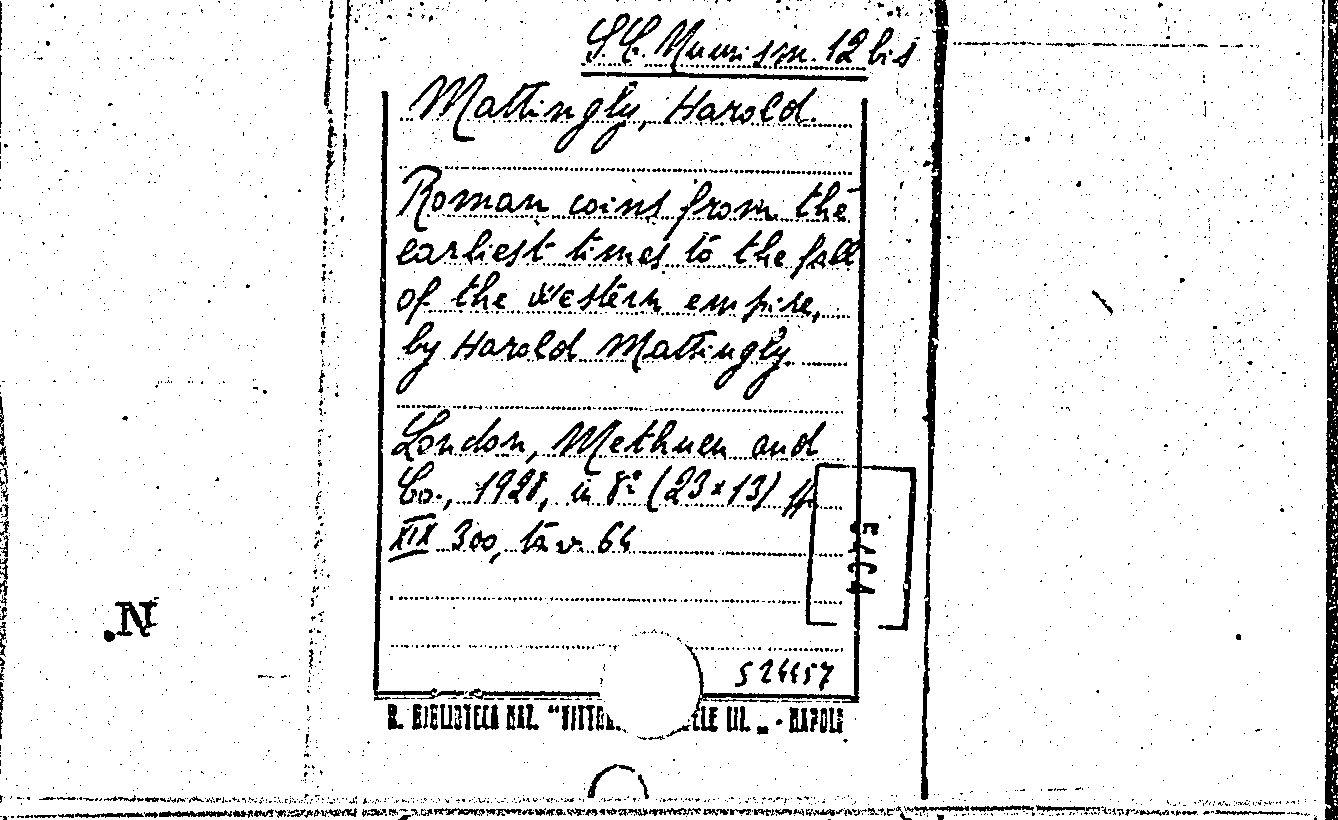 S.C. Numism. 12 bis
Mattingly, Harold.
Roman coins from the
earliest times to the fall
of the Western empire,
by Harold Mattingly.
London, Methuen and
Co., 1928, in 8º (23×13) pp.
XIX 300, tav. 64
R. BIBLIOTECA NAZ. "VITTO ELE III. „ - NAPOLI
N.